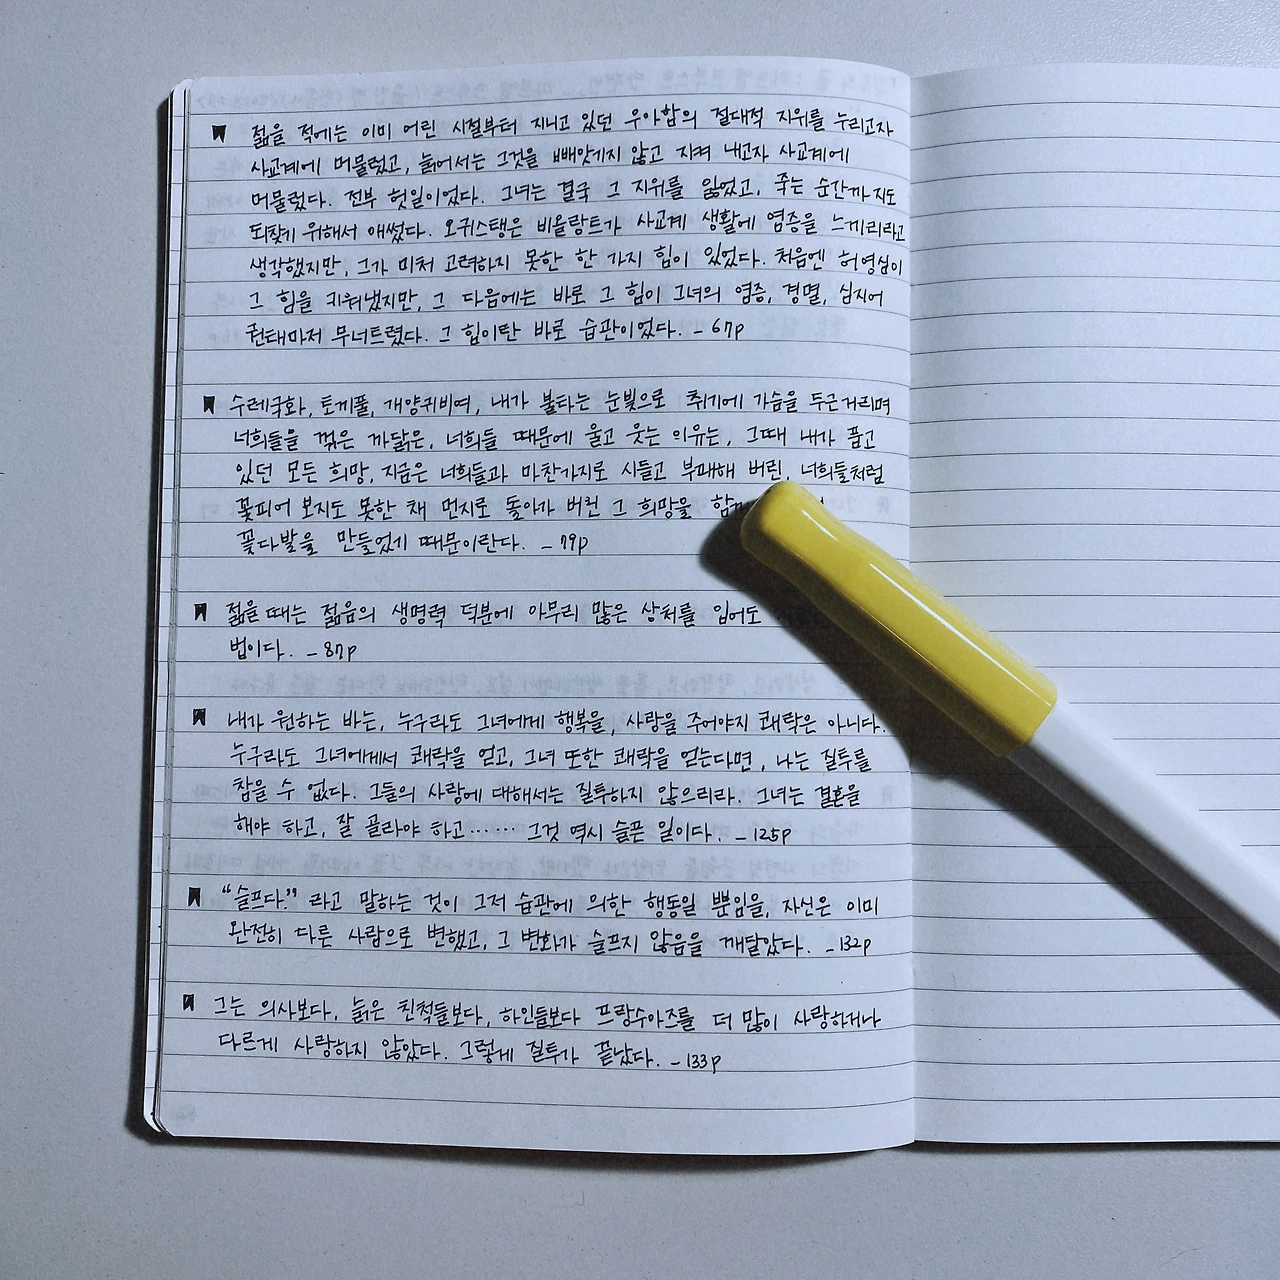 젊을 적에는 이미 어린 시절부터 지니고 있던 우아함의 절대적 지위를 누리고자
사교계에 머물렀고, 늙어서는 그것을 빼앗기지 않고 지켜 내고자 사교계에
머물렀다. 전부 헛일이었다. 그녀는 결국 그 지위를 잃었고, 죽는 순간까지도
되찾기 위해서 애썼다. 오귀스탱은 비올랑트가 사교계 생활에 염증을 느끼리라고
생각했지만, 그가 미처 고려하지 못한 한 가지 힘이 있었다. 처음엔 허영심이
그 힘을 키워냈지만, 그 다음에는 바로 그 힘이 그녀의 염증, 경멸, 심지어
권태마저 무너트렸다. 그 힘이란 바로 습관이었다. - 67p
수레국화, 토끼풀, 개양귀비여, 내가 불타는 눈빛으로 취기에 가슴을 두근거리며
너희들을 꺾은 까닭은, 너희들 때문에 울고 웃는 이유는, 그때 내가 품고
있던 모든 희망, 지금은 너희들과 마찬가지로 시들고 부패해 버린, 너희들처럼
꽃피어 보지도 못한 채 먼지로 돌아가 버린 그 희망을
꽃다발을 만들었기 때문이란다. - 79p
젊을 때는 젊음의 생명력 덕분에 아무리 많은 상처를 입어도
법이다. - 87p
내가 원하는 바는, 누구라도 그녀에게 행복을, 사랑을 주어야지 쾌락은 아니다.
누구라도 그녀에게서 쾌락을 얻고, 그녀 또한 쾌락을 얻는다면, 나는 질투를
참을 수 없다. 그들의 사랑에 대해서는 질투하지 않으리라. 그녀는 결혼을
해야 하고, 잘 골라야 하고…… 그것 역시 슬픈 일이다. - 125p
“슬프다.” 라고 말하는 것이 그저 습관에 의한 행동일 뿐임을, 자신은 이미
완전히 다른 사람으로 변했고, 그 변화가 슬프지 않음을 깨달았다. - 132p
그는 의사보다, 늙은 친척들보다, 하인들보다 프랑수아즈를 더 많이 사랑하거나
다르게 사랑하지 않았다. 그렇게 질투가 끝났다. - 133p